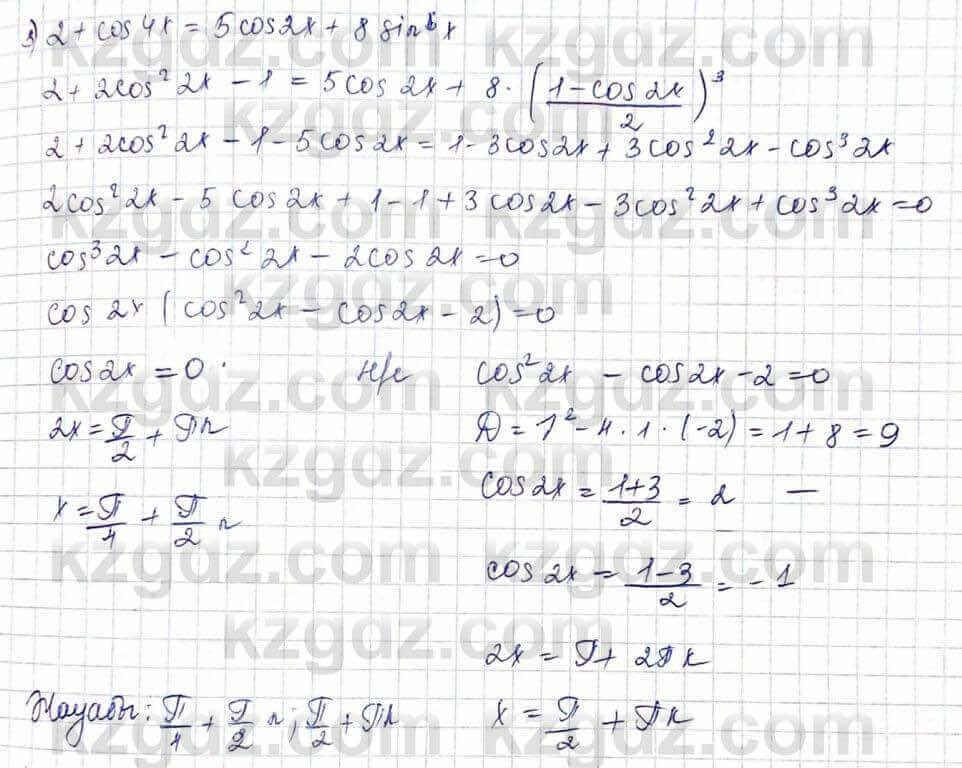 3) 2 + cos 4x = 5cos2x + 8 sin⁶x
2 + 2cos² 2x − 1 = 5cos 2x + 8 · ((1−cos 2x)/2)³
2 + 2cos² 2x − 1 − 5cos2x = 1 − 3cos2x + 3cos²2x − cos³2x
2cos²2x − 5 cos2x + 1 − 1 + 3cos2x − 3cos²2x + cos³2x = 0
cos³2x − cos²2x − 2cos2x = 0
cos 2x (cos²2x − cos2x − 2) = 0
cos2x = 0 н/е cos²2x − cos2x − 2 = 0
2x = π/2 + πn D = 1² − 4 · 1 · (−2) = 1 + 8 = 9
x = π/4 + π/2 n cos2x = (1+3)/2 = 2 —
cos2x = (1−3)/2 = −1
2x = π + 2πk
Жауабы: π/4 + π/2 n; π/2 + πk x = π/2 + πk
kzgdz.com